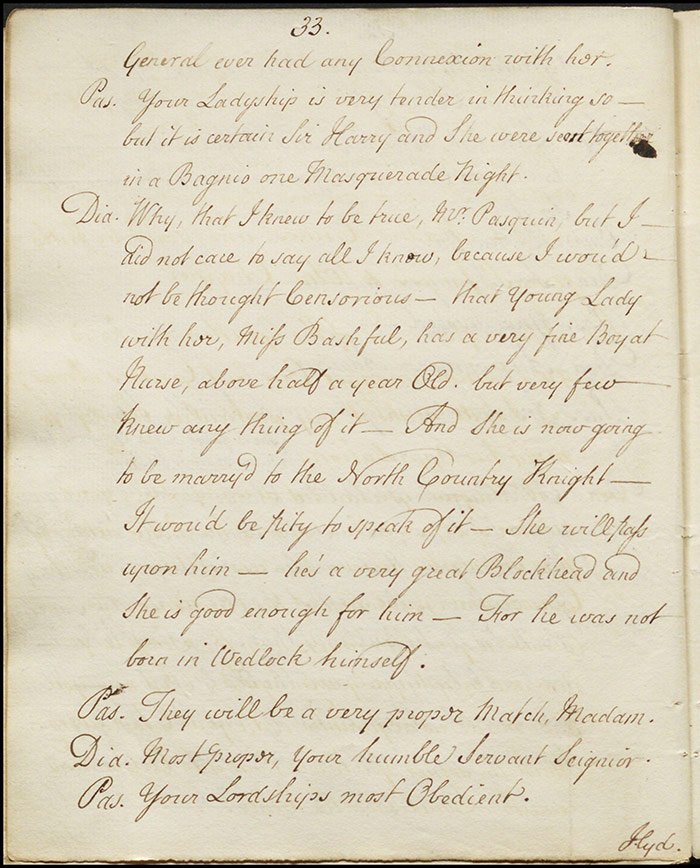 33.
General ever had any Connexion with her.
Pas. Your Ladyship is very tender in thinking so —
but it is certain Sir Harry and She were seen together
in a Bagnio one Masquerade Night.
Dia. Why, that I knew to be true, Mr. Pasquin, but I —
did not care to say all I know, because I wou'd —
not be thought Censorious — that Young Lady
with her, Miss Bashful, has a very fine Boy at
Nurse, above half a year Old. but very few —
knew any thing of it — And She is now going
to be marry'd to the North Country Knight —
It wou'd be pity to speak of it — She will pass
upon him — he's a very great Blockhead and
She is good enough for him — For he was not
born in Wedlock himself.
Pas. They will be a very proper Match, Madam.
Dia. Most proper, Your humble Servant Seignior.
Pas. Your Lordships most Obedient.
Hyd.